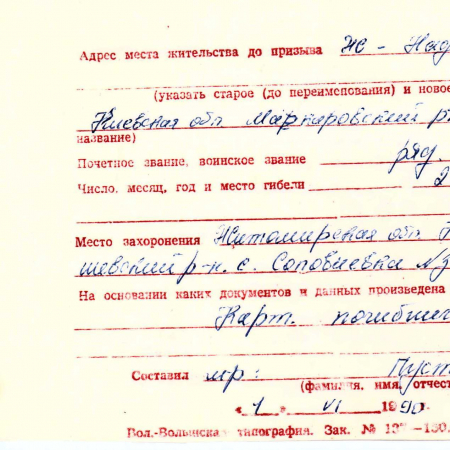 Адрес места жительства до призыва жс - Над
(указать старое (до переименования) и новое
Киевская обл Макаровский р
название)
Почетное звание, воинское звание ряд.
Число, месяц, год и место гибели 2
Место захоронения Житомирская обл
шевский р-н. с. Соловиевка №3
На основании каких документов и данных произведена
Карт. погибши
Составил мр: Пуст
(фамилия, имя, отчест
« 1 » VI 1990г.
Вол.-Волынская типография. Зак. № 13 —130.